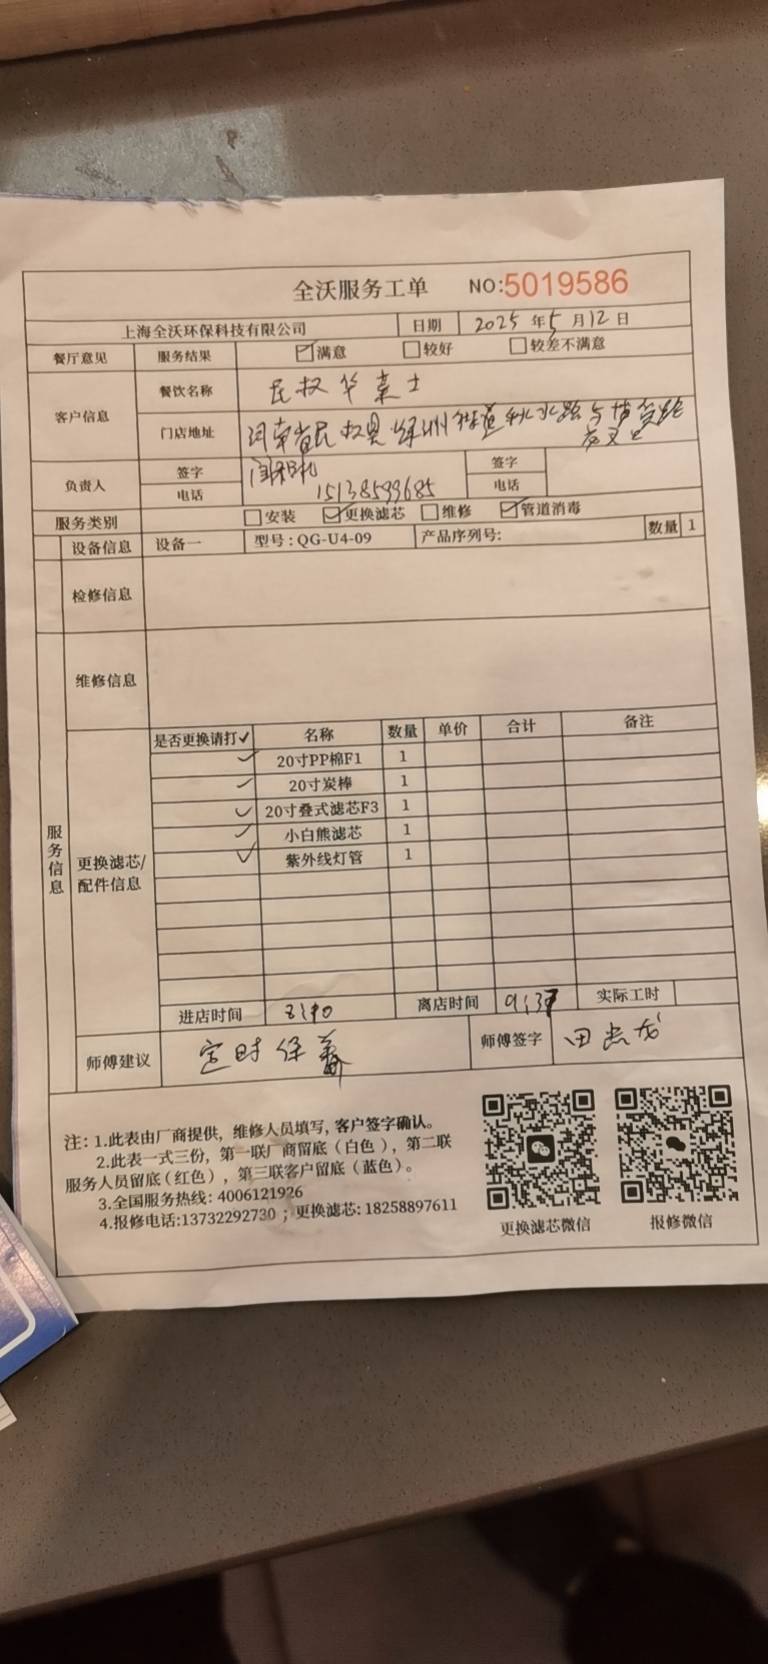 全沃服务工单 NO:5019586
上海全沃环保科技有限公司 日期 2025年5月12日
餐厅意见 服务结果 ☑满意 ☐较好 ☐较差不满意
客户信息 餐饮名称 民权华莱士
门店地址 河南省民权县绿洲街道秋水路与博爱路
交叉口
负责人 签字 签字
电话 15138599685 电话
服务类别 ☐安装 ☑更换滤芯 ☐维修 ☑管道消毒
设备信息 设备一 型号:QG-U4-09 产品序列号: 数量 1
检修信息
维修信息
服务信息
更换滤芯/
配件信息
是否更换请打✓ 名称 数量 单价 合计 备注
✓ 20寸PP棉F1 1
✓ 20寸炭棒 1
✓ 20寸叠式滤芯F3 1
✓ 小白熊滤芯 1
✓ 紫外线灯管 1
进店时间 离店时间 实际工时
师傅建议 定时保养 师傅签字
注: 1.此表由厂商提供，维修人员填写, 客户签字确认。
2.此表一式三份，第一联厂商留底 (白色 )，第二联
服务人员留底(红色)，第三联客户留底 (蓝色)。
3.全国服务热线: 4006121926
4.报修电话:13732292730 ; 更换滤芯: 18258897611
更换滤芯微信 报修微信